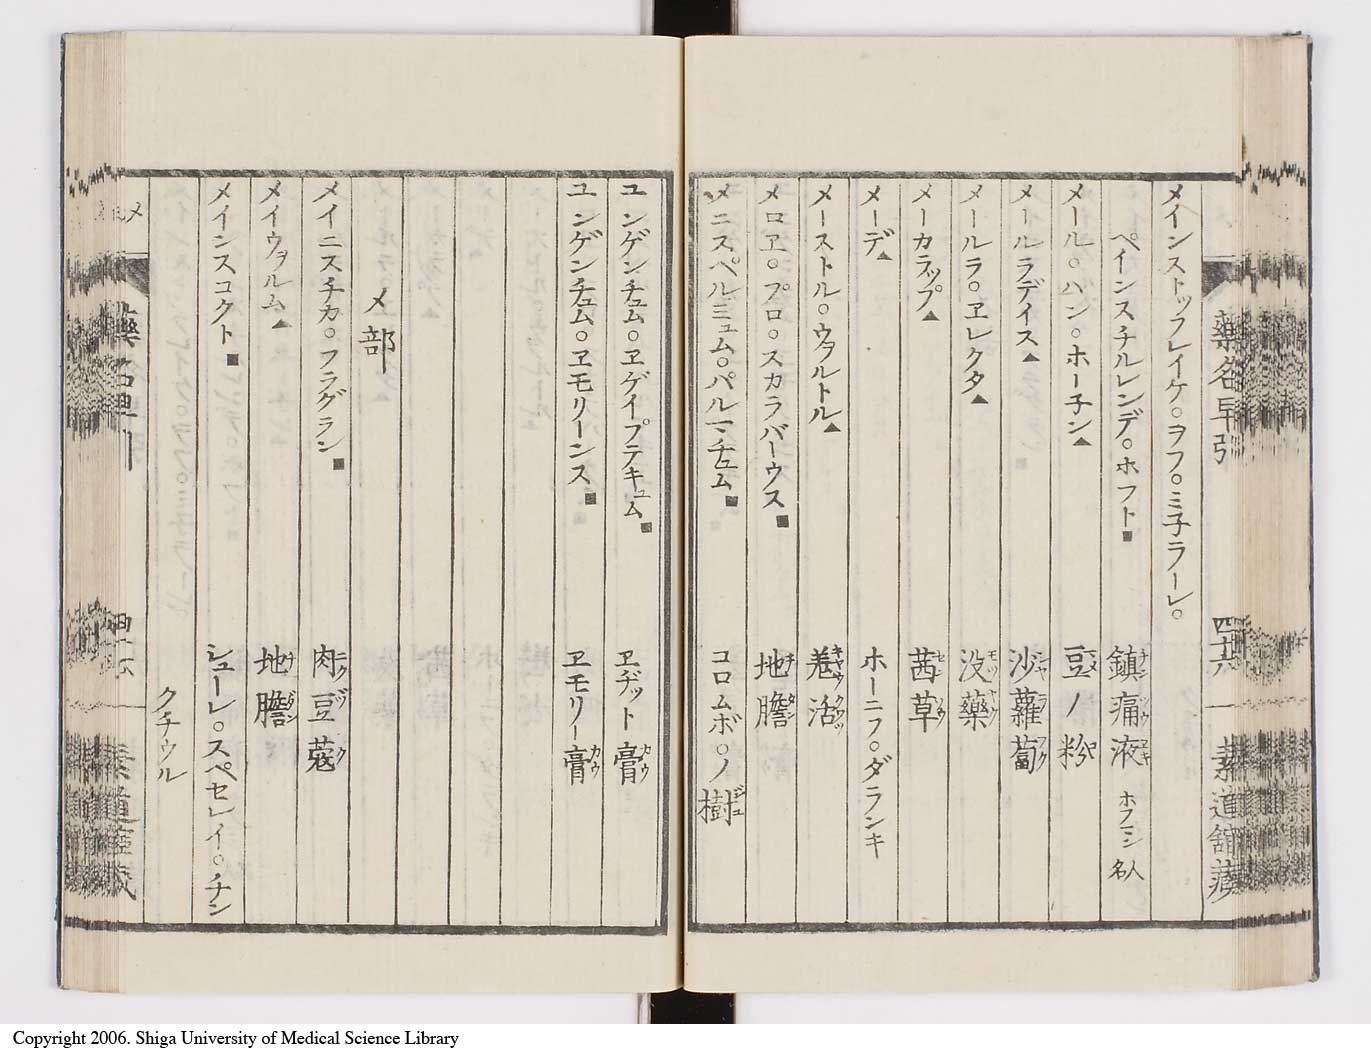 藥名早引
四十六
メインストツフレイケ○ヲフ○ミ子ラーレ○
ペインスチルレンデ○ホフト■ 鎮痛液 ホフマン名人
メール○ハン○ホーチン▲ 豆ノ粉
メールラデイス▲ 沙蘿蔔
メールラ○ヱレクタ▲ 没藥
メーカラップ▲ 茜草
メーデ▲ ホーニフ○ダランキ
メーストル○ウヲルトル▲ 羗活
メロヱ○プロ○スカラバーウス■ 地膽
メニスペルミュム○パルマチュム■ コロムボ○ノ樹
ユンゲンチュム○ヱゲイプテキュム■ ヱヂット膏
ユンゲンチュム○ヱモリーンス■ ヱモリー膏
メ部
メイニスチカ○フラグラン■ 肉豆蔲
メイウヲルム▲ 地膽
メインスコクト■ シューレ○スペセレイ○チン
クチウル
Copyright 2006. Shiga University of Medical Science Library